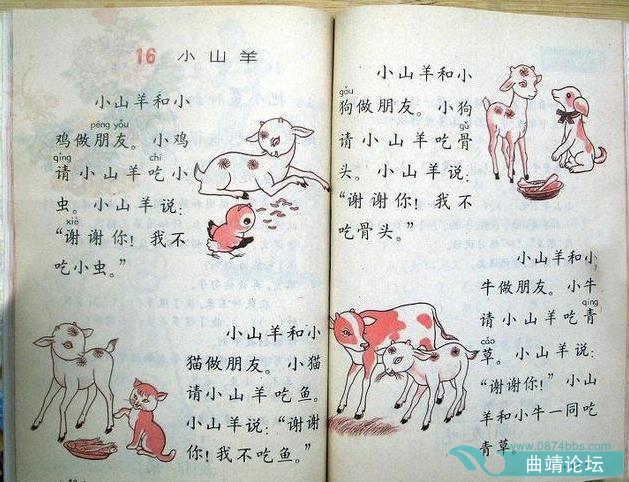 16 小山羊
小山羊和小
péng yǒu
鸡做朋友。小鸡
qǐng chī
请小山羊吃小
虫。小山羊说：
xiè
“谢谢你！我不
吃小虫。”
小山羊和小
猫做朋友。小猫
请小山羊吃鱼。
小山羊说：“谢谢
你！我不吃鱼。”
小山羊和小
gǒu
狗做朋友。小狗
gǔ
请小山羊吃骨
头。小山羊说：
“谢谢你！我不
吃骨头。”
小山羊和小
牛做朋友。小牛
qīng
请小山羊吃青
cǎo
草。小山羊说：
“谢谢你！”小山
羊和小牛一同吃
青草。
www.0874bbs.com
曲靖论坛